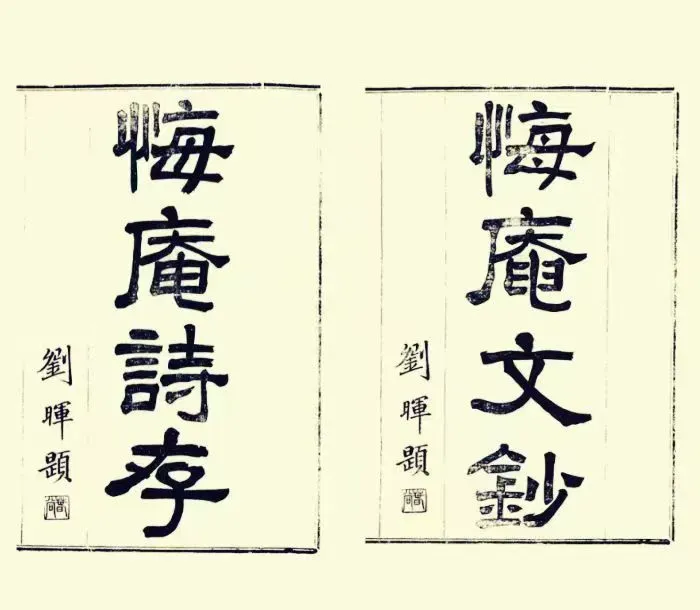 悔庵文鈔
劉暉題
悔庵詩存
劉暉題